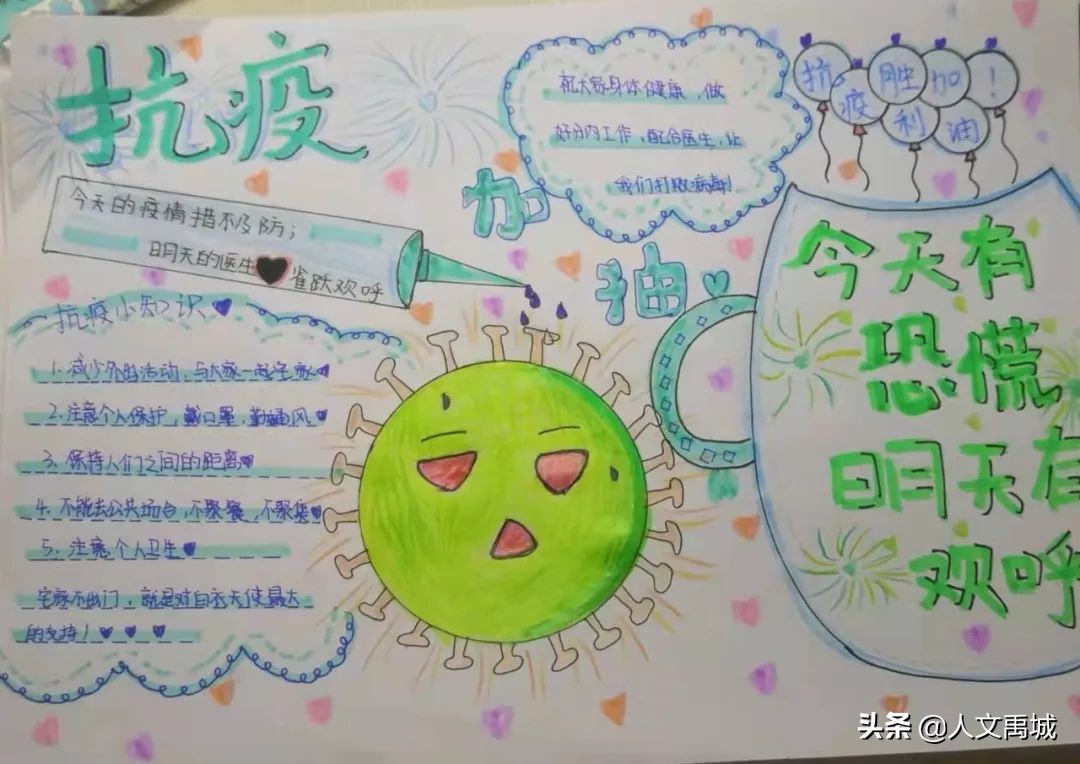 抗疫
祝大家身体健康，做
好分内工作，配合医生，让
我们打败病毒！
抗疫胜利加油！
加油
今天的疫情措不及防；
明天的医生雀跃欢呼
抗疫小知识
1.减少外出活动，与大家一起宅家
2.注意个人保护，戴口罩，勤通风
3.保持人们之间的距离
4.不能去公共场合，不聚餐，不聚集
5.注意个人卫生
宅家不出门，就是对白衣天使最大
的支持！
今天有
恐慌
明天有
欢呼
头条 @人文禹城